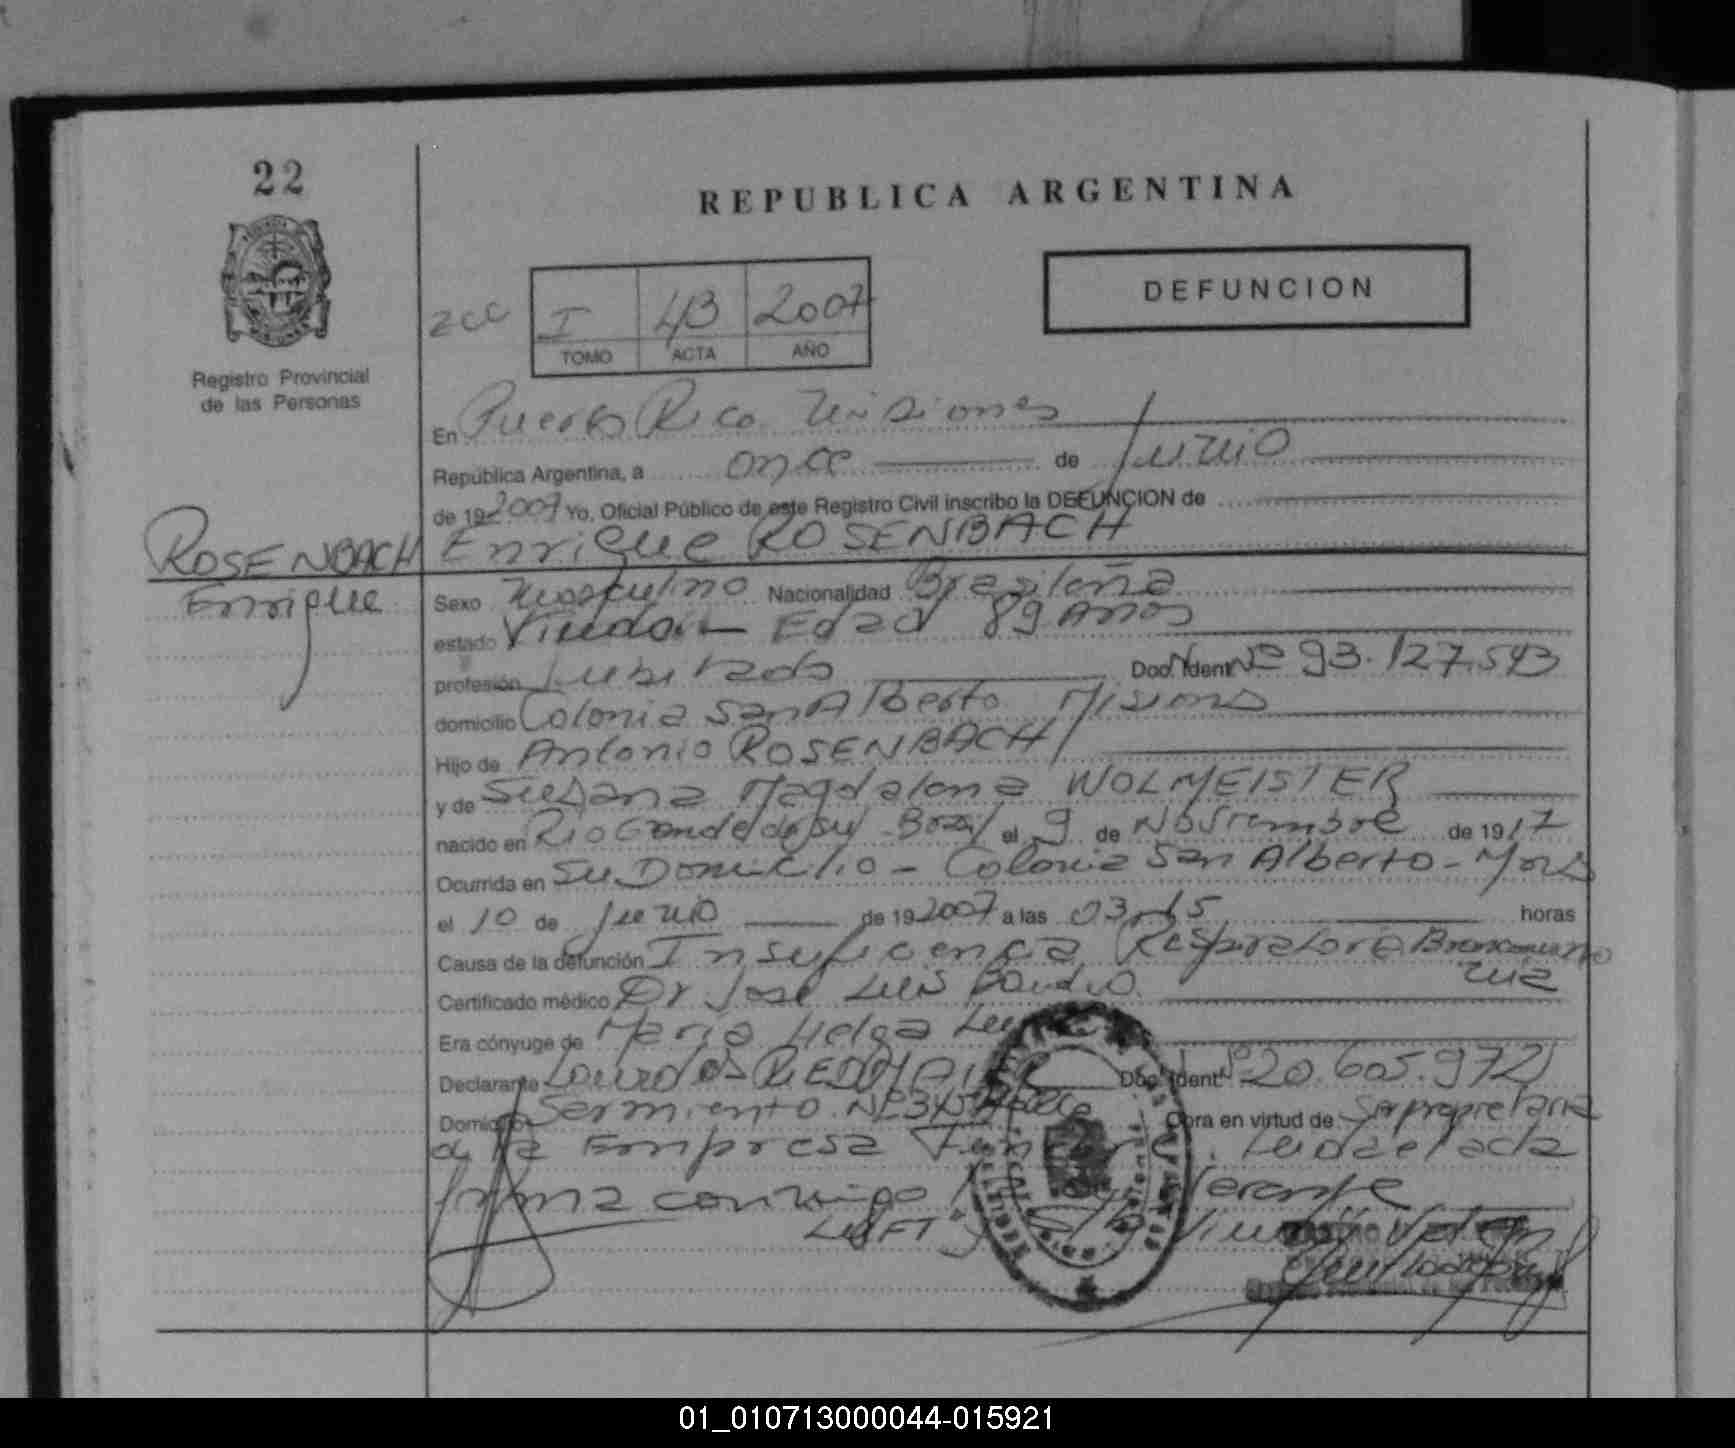 22
REPUBLICA ARGENTINA
DEFUNCION
I 43 2007
TOMO ACTA AÑO
Registro Provincial
de las Personas
En Puerto Rico Misiones
República Argentina, a once de Junio
de 19 2007 Yo, Oficial Público de este Registro Civil inscribo la DEFUNCION de
ROSENBACH Enrique ROSENBACH
Enrique
Sexo Masculino Nacionalidad Brasileña
estado Viudo - Edad 89 Años
profesión Jubilado Doc. Ident. Nº 93.127.543
domicilio Colonia San Alberto Misiones
Hijo de Antonio ROSENBACH
y de Susana Magdalena WOLMEISTER
nacido en Rio Grande do Sul Brasil el 9 de Noviembre de 1917
Ocurrida en Su Domicilio - Colonia San Alberto - Mnes
el 10 de Junio de 19 2007 a las 03,15 horas
Causa de la defunción Insuficiencia Respiratoria Bronconeumo
nia
Certificado médico Dr José Luis
Era cónyuge de Maria Helga
Declarante Lourdes Doc. Ident. Nº 20.605.972
Domicilio Sarmiento Nº 345 Obra en virtud de Ser propietaria
de la Empresa Leida el acta
firma conmigo
LUFT
01_010713000044-015921